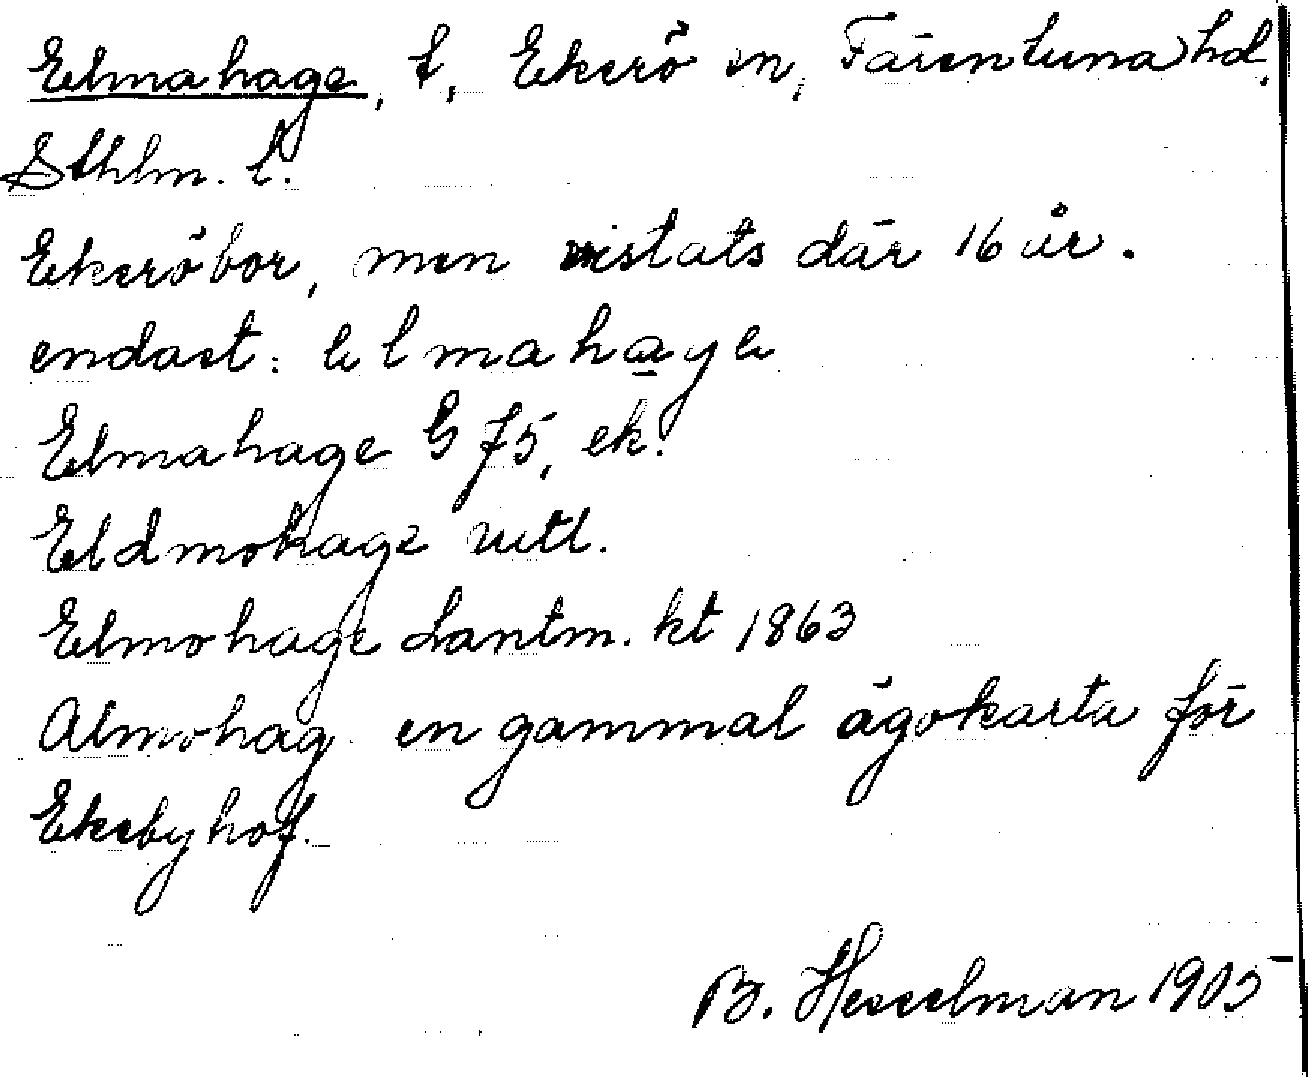 Elmahage, t, Ekerö sn, Färentuna hd.
Sthlm. l.
Ekeröbor, men vistats där 16 år.
endast: elmahage
Elmahage G f5, ek.
Eldmohage uttl.
Elmohage Lantm. kt 1863
Almohag en gammal ägokarta för
Ekebyhof.
B. Hesselman 1905